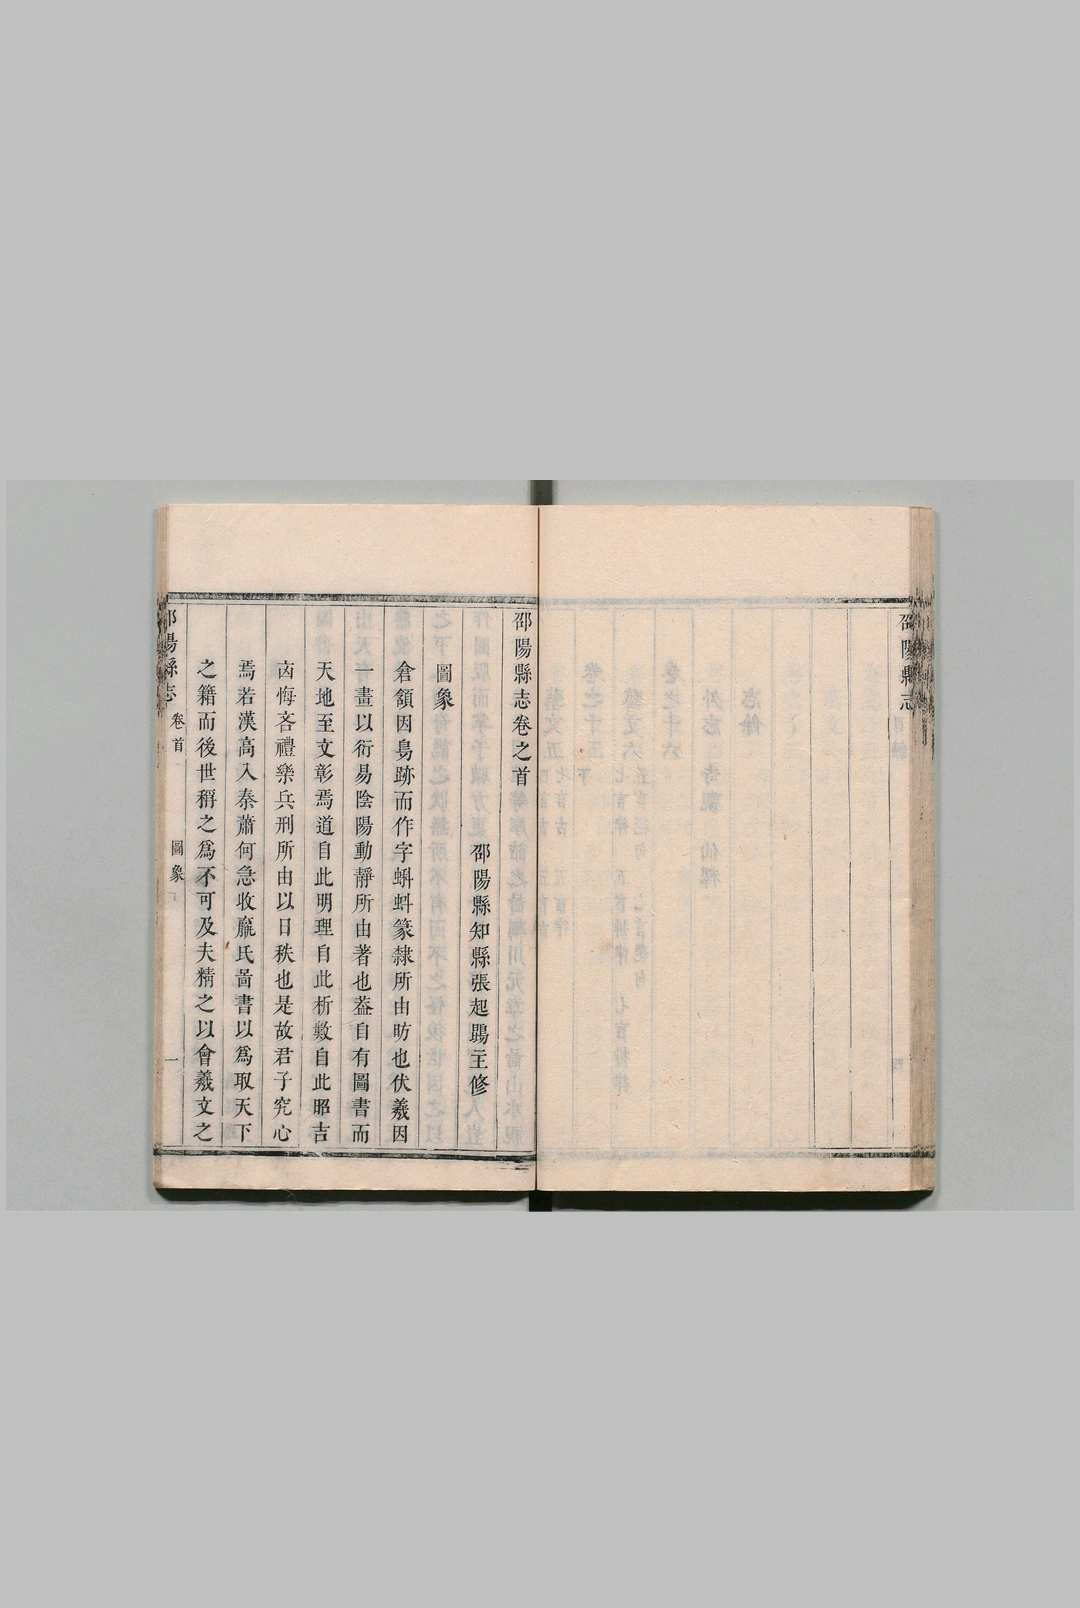 邵陽縣志
邵陽縣志卷之首
邵陽縣知縣張起鵾主修
圖象
倉頡因鳥跡而作字蝌蚪篆隸所由昉也伏羲因
一畫以衍易陰陽動靜所由著也蓋自有圖書而
天地至文彰焉道自此明理自此析數自此昭吉
凶悔吝禮樂兵刑所由以日秩也是故君子究心
焉若漢高入秦蕭何急收龎氏啚書以爲取天下
之籍而後世稱之爲不可及夫精之以會羲文之
邵陽縣志
卷首
圖象
一